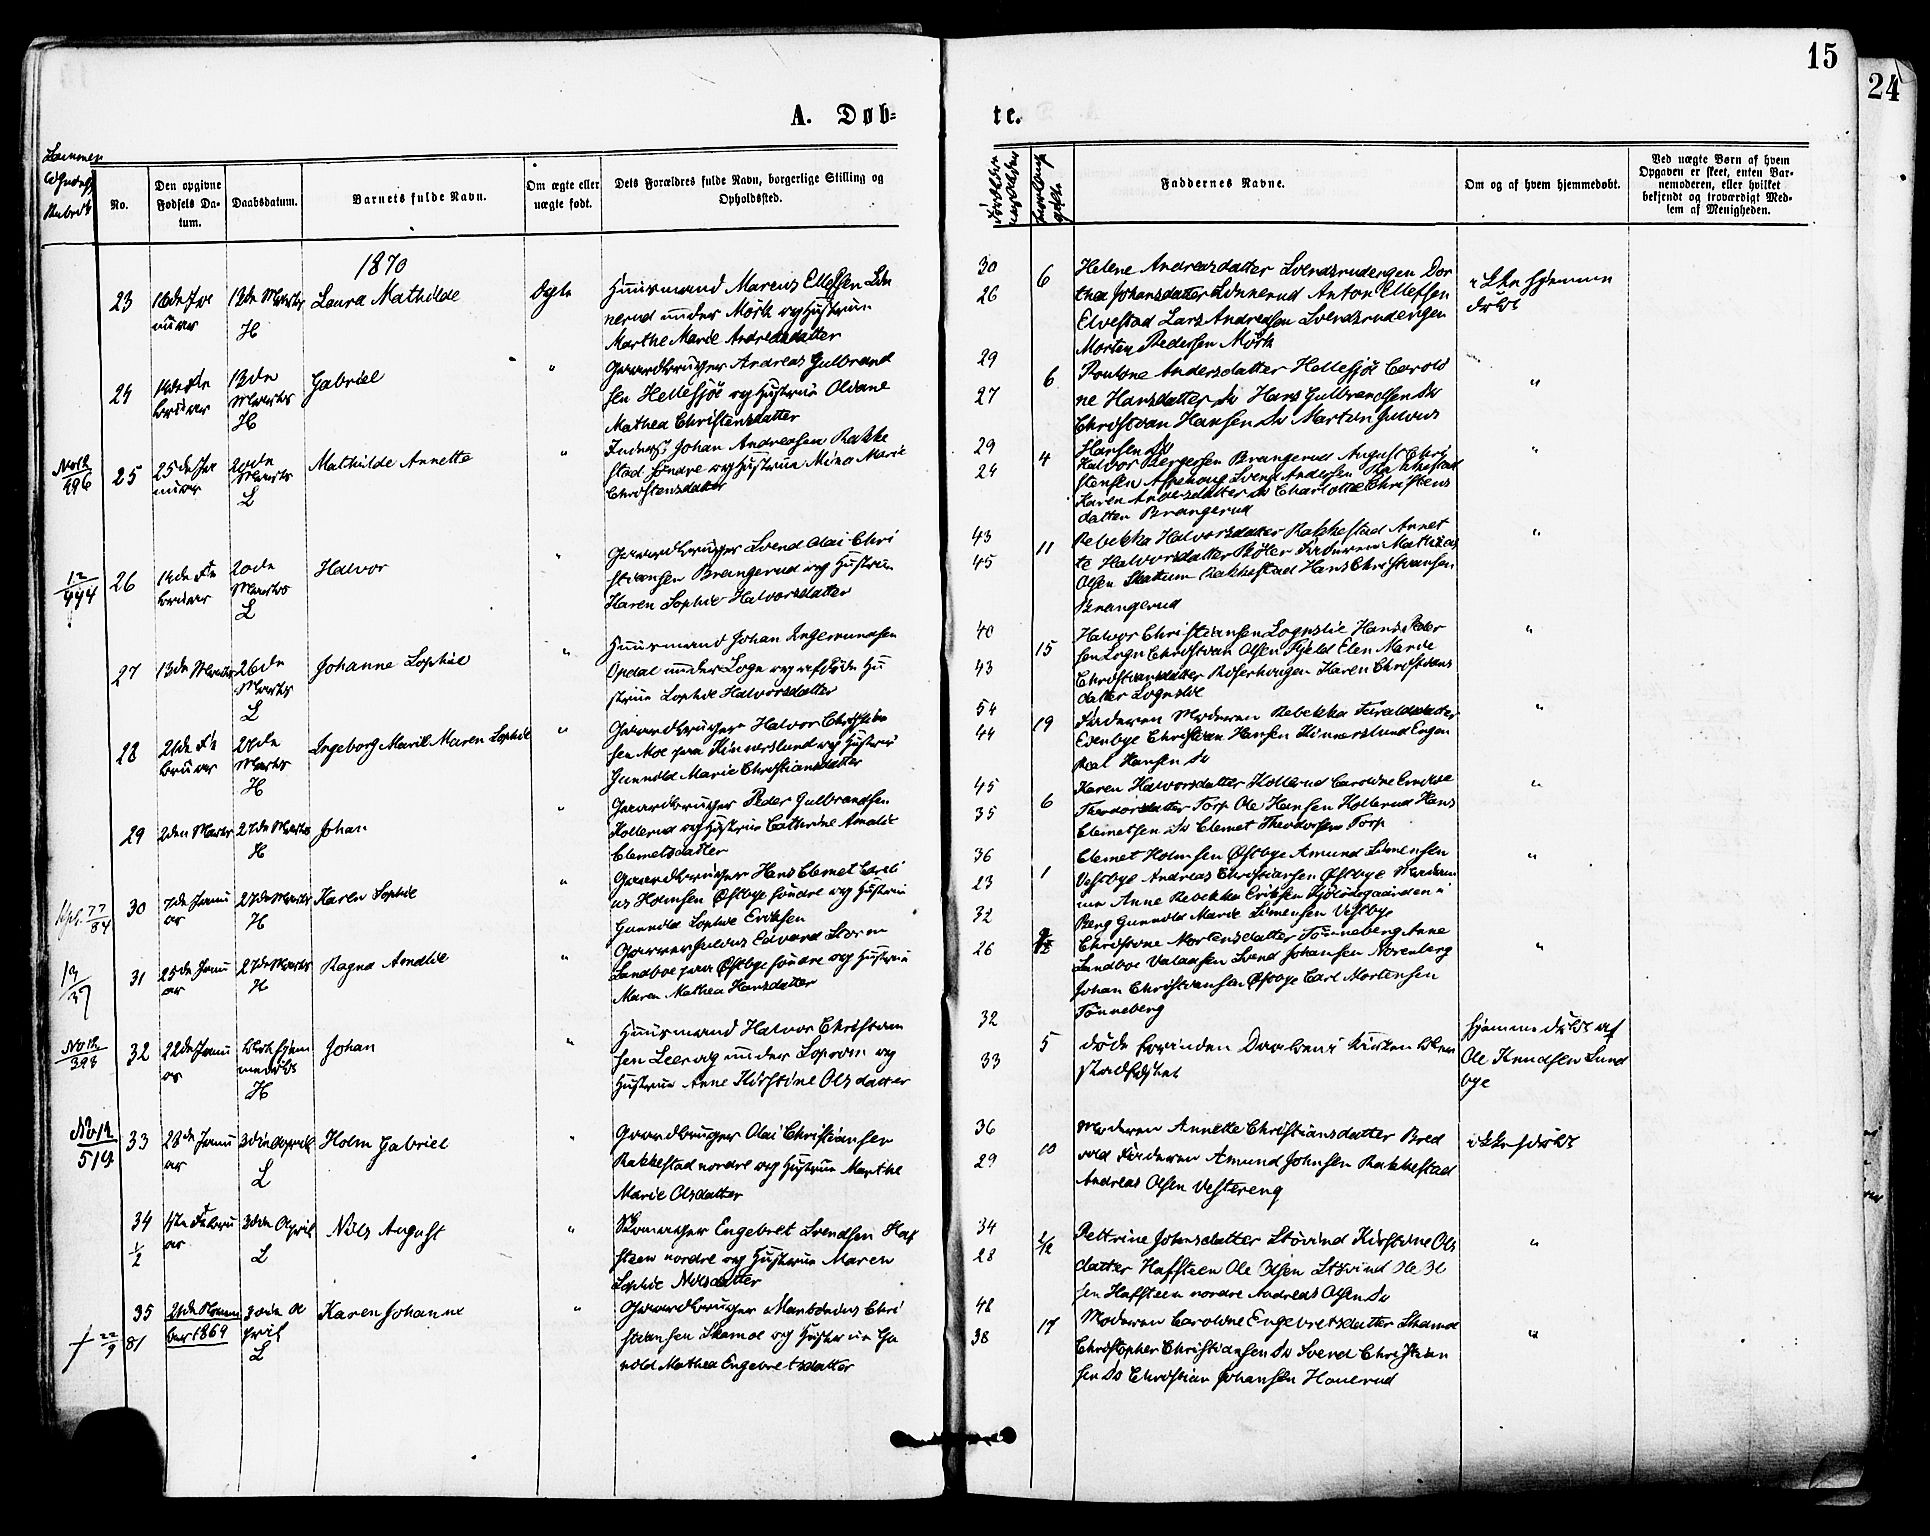 15
24
A. Døb=
te.
No.
Den opgivne
Fødsels Da-
tum.
Daabsdatum.
Barnets fulde Navn.
Om ægte eller
uægte født.
Dets Forældres fulde Navn, borgerlige Stilling og
Opholdssted.
Faddernes Navne.
Om og af hvem hjemmedøbt.
Ved uægte Børn af hvem
Opgaven er skeet, enten Bar-
nemoderen, eller hvilket
bekjendt og troværdigt Med-
lem af Menigheden.
1870
23
13de Marts
H
Laura Mathilde
Ægte
Huusmand Marcus Ellefsen
under Mörk og Hustrue
Marthe Marie Andreasdatter
30
26
6
Helene Andreasdatter Svendsrudengen Dor
thea Johansdatter Anton Ellefsen
Elvestad Lars Andreasen Svendsrudengen
Morten Pedersen Mörk
ikke hjemme
døbt
24
14de Fe
bruar
13de
Marts
H
Gabriel
"
Gaardbruger Andreas Gulbrand
sen Hellesjöe og Hustrue Oleane
Mathea Christensdatter
29
27
6
Andersdatter Hellesjöe Caroli
ne Hansdatter Do Hans Gulbrandsen Do
Christian Hansen Do Martin Julius
Hansen Do
"
25
25de Ja
nuar
20de
Marts
L
Mathilde Annette
"
Johan Andreasen Rakke
stad söndre og Hustrue Mina Marie
Christensdatter
29
24
4
Halvor Bergersen Brangerud August Chri
stensen Svend Andersen Rakkestad
Karen Andersdatter Do Charlotte Christens
datter Brangerud
"
12
444
26
14de Fe
bruar
20de
Marts
L
Halvor
"
Gaardbruger Svend Olai Chri
stiansen Brangerud og Hustrue
Karen Sophie Halvorsdatter
43
45
11
Rebekka Halvorsdatter Rakkestad Annet
te Halvorsdatter Faderen Mathias
Olsen Skatum Rakkestad Hans Christiansen
Brangerud
"
27
13de Marts
26de
Marts
L
Johanne Sophie
"
Huusmand Johan Ingemundsen
Opdal under Sogn og afdöde Hu
strue Sophie Halvorsdatter
40
43
15
Halvor Christiansen Sognslie Hans Peder
sen Sogn Christian Olsen Fjeld Elen Marie
Christiansdatter Karen Christians
datter Sognslie
"
28
21de Fe
bruar
27de
Marts
H
Ingeborg Marie Maren Sophie
"
Gaardbruger Halvor Christian
sen Moe paa Kinnerslund og Hustrue
Gunnild Marie Christiansdatter
54
44
19
Faderen Moderen Rebekka
Evenbye Christian Hansen Kinnerslund Engen
Hansen Do
"
29
2den Marts
27de Marts
H
Johan
"
Gaardbruger Peder Gulbrandsen
Kollerud og Hustrue Cathrine Amalie
Clemetsdatter
45
35
6
Karen Halvorsdatter Kollerud Caroline Emilie
Theodorsdatter Torp Ole Hansen Kollerud Hans
Clemetsen Do Clemet Theodorsen Torp
"
77
84
30
7de Janu
ar
27de Marts
H
Karen Sophie
"
Gaardbruger Hans Clemet Carli
us Holmsen Østbye söndre og Hustrue
Gunnild Sophie Eriksen
36
23
1
Clemet Holmsen Østbye Amund Simensen
Vestbye Andreas Christiansen Østbye
Anne Rebekka Eriksen i
Berg Gunnild Marie Simensen Vestbye
"
13
37
31
25de Janu
ar
27de Marts
H
Ragna Amalie
"
Edvard Storm
Sandboe paa Østbye söndre og Hustrue
Maren Mathea Hansdatter
32
26
Christine Mortensdatter Tönneberg Anne
Sandboe Valaasen Svend Johansen Norenberg
Johan Christiansen Østbye Carl Mortensen
Tönneberg
"
No 12
393
32
22de Janu
ar
H
Johan
"
Huusmand Halvor Christian
sen under og
Hustrue Anne Kirstine Olsdatter
32
33
5
döde forinden Daaben i Kirken blev
stadfæstet
hjemmedøbt af
Ole Knudsen Lund
bye
No 12
514
33
28de Janu
ar
3die April
L
Holm Gabriel
"
Gaardbruger Olai Christiansen
Rakkestad nordre og Hustrue Marthe
Marie Olsdatter
36
29
10
Moderen Annette Christiansdatter Bred
vad Faderen Amund Johnsen Rakkestad
Andreas Olsen Vestereng
34
1/2
Februar
3die April
L
Nils August
"
Skomager Engebret Svendsen Haf
steen nordre og Hustrue Maren
Sophie Nilsdatter
34
28
2/2
Pettrine Johnsdatter Stövind Kirstine Ols
datter Haffsteen Ole Olsen Stövind Ole Ol
sen Haffsteen nordre Andreas Olsen Do
"
22
9 81
35
ber 1869
3die A
pril
L
Karen Johanne
"
Gaardbruger Chri
stiansen Skamol og Hustrue Gu
nild Mathea Engebretsdatter
48
38
17
Moderen Caroline Engebretsdatter Skamol
Christopher Christiansen Do Svend Christian
sen Do Christian Johansen Honerud
"